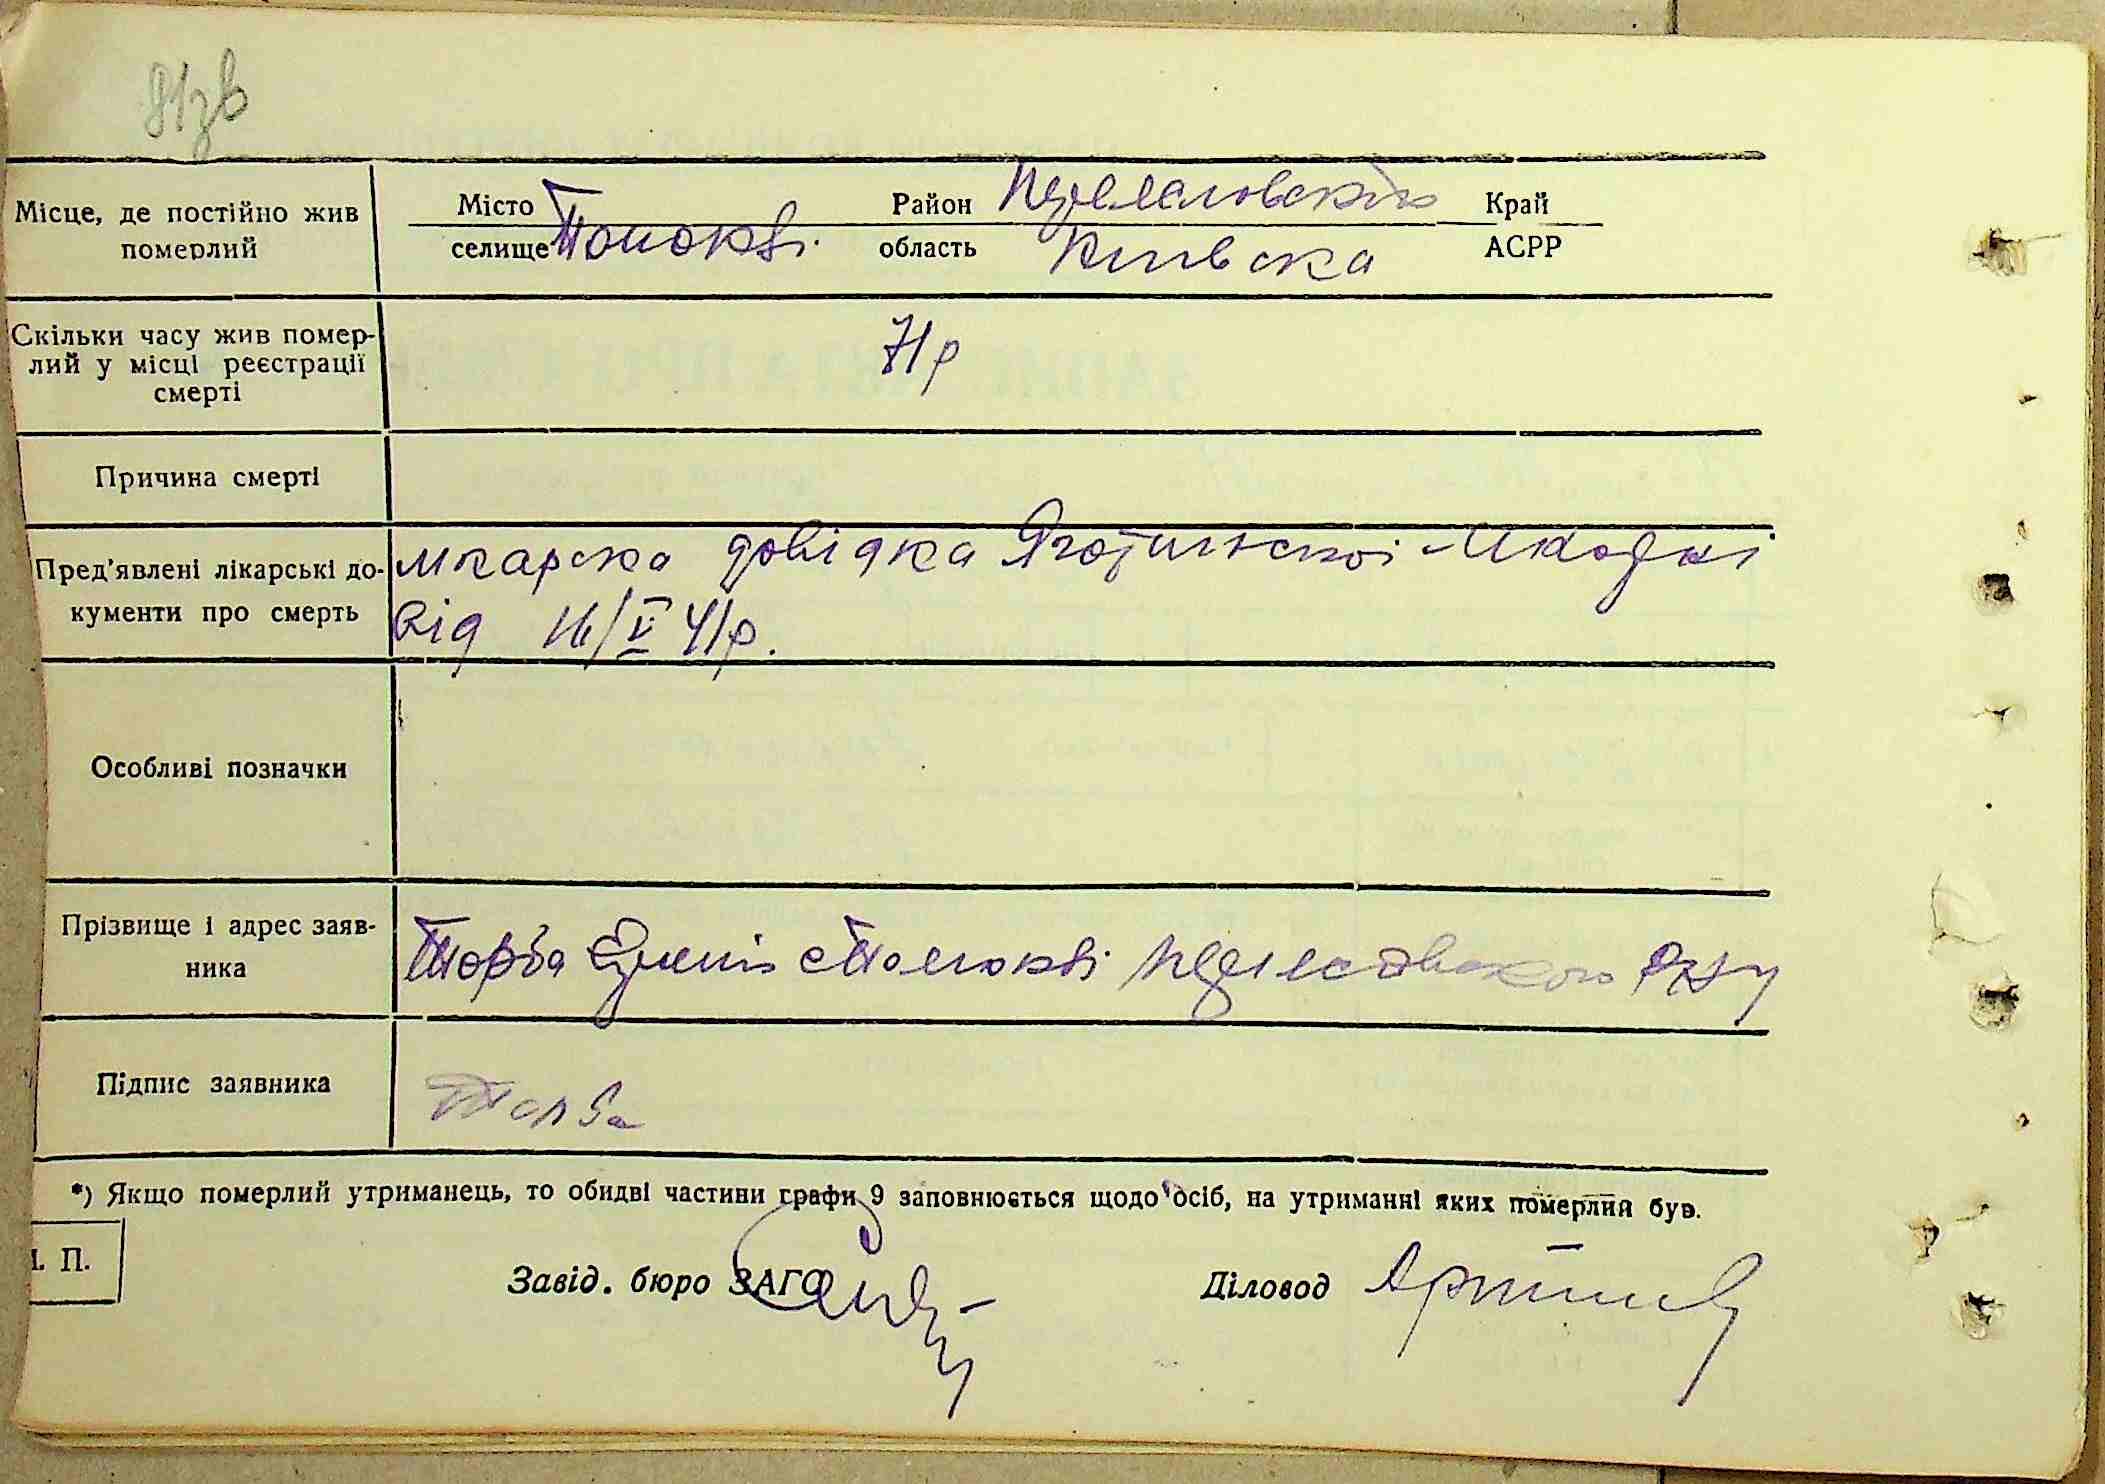 81зв
Місце, де постійно жив
померлий
Місто
селище
Район
область
Київска
Край
АСРР
Скільки часу жив помер-
лий у місці реєстрації
смерті
71р
Причина смерті
Пред'явлені лікарські до-
кументи про смерть
лікарска довідка Яготинскої лікарні
від 16/V 41р.
Особливі позначки
Прізвище і адрес заяв-
ника
Торба
Підпис заявника
Торба
*) Якщо померлий утриманець, то обидві частини графи 9 заповнюється щодо осіб, на утриманні яких померлий був.
. П.
Завід. бюро ЗАГС
Діловод